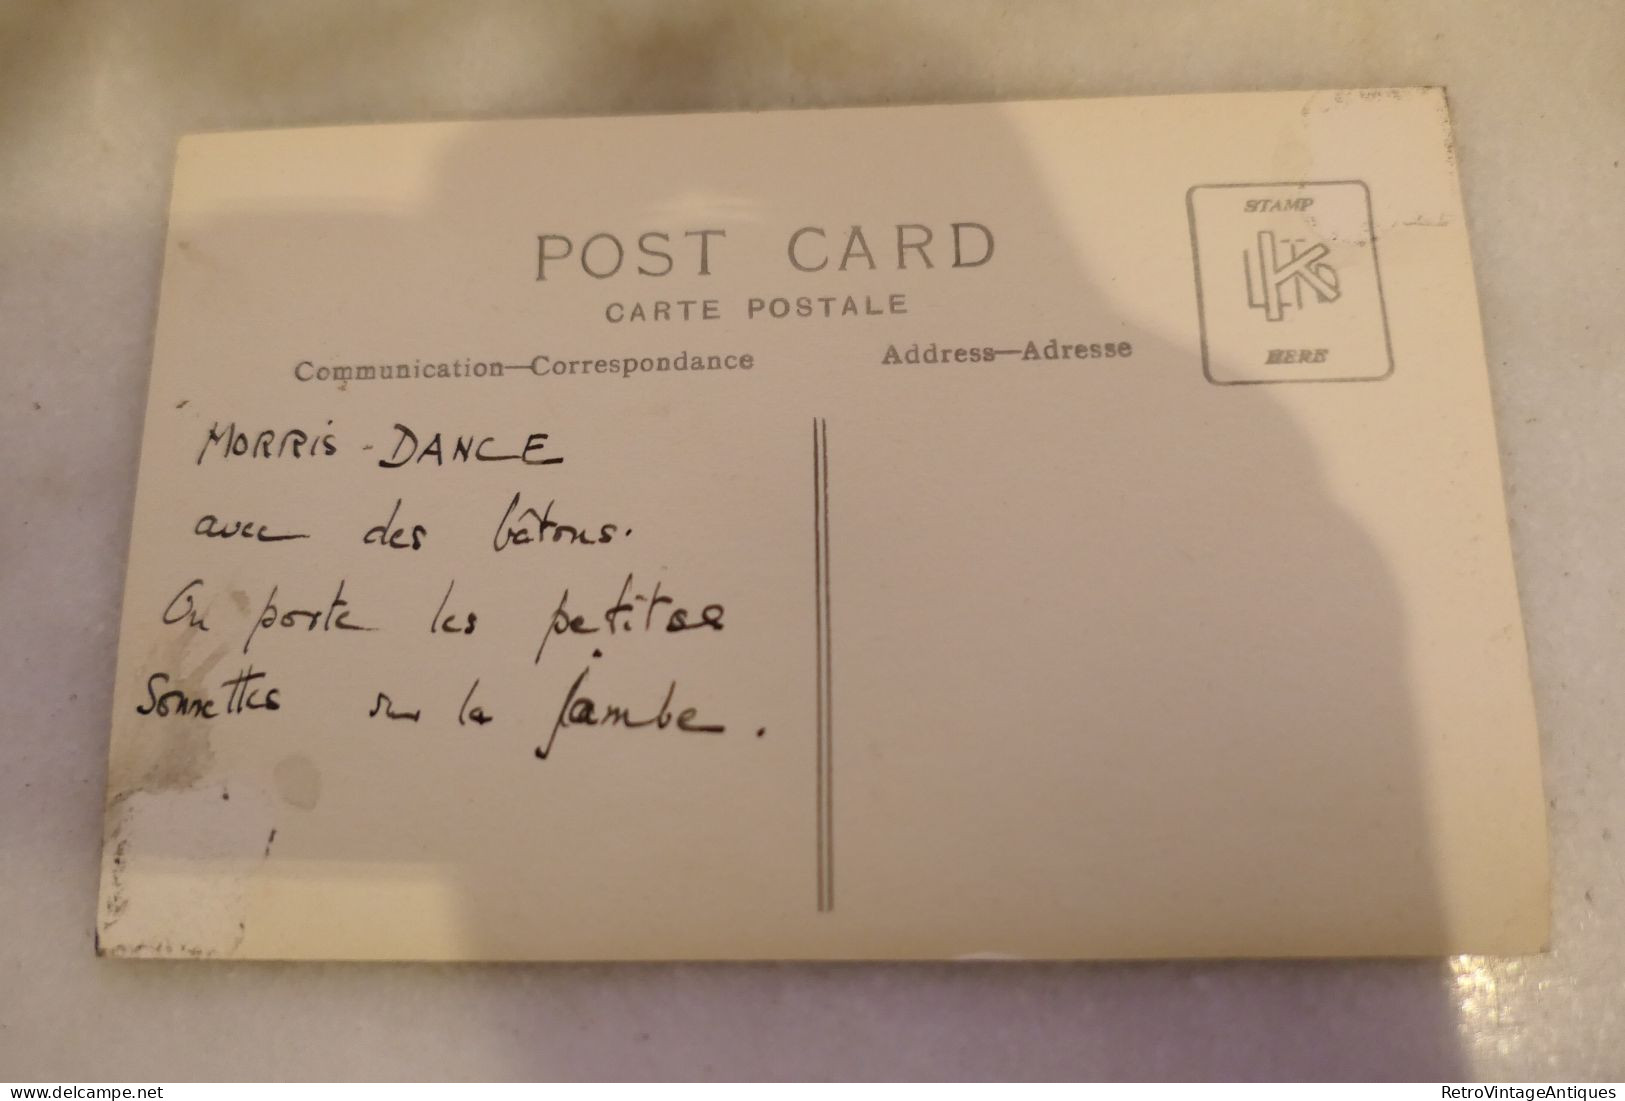 POST CARD
CARTE POSTALE
Communication—Correspondance
Address—Adresse
STAMP
HERE
MORRIS - DANCE
avec des bâtons.
On porte les petites
sonnettes sur la jambe.
© delcampe.net
RetroVintageAntiques